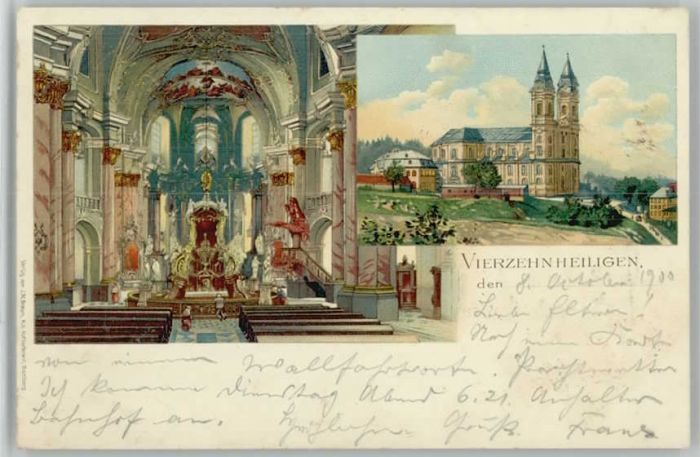 VIERZEHNHEILIGEN,
den 8. October 1900
Liebe Eltern!
Noch eine Karte
von einem Wallfahrtsorte.
Ich komme Dienstag Abend 6.21. Anhalter
Bahnhof an. Herzlichen Gruß Franz